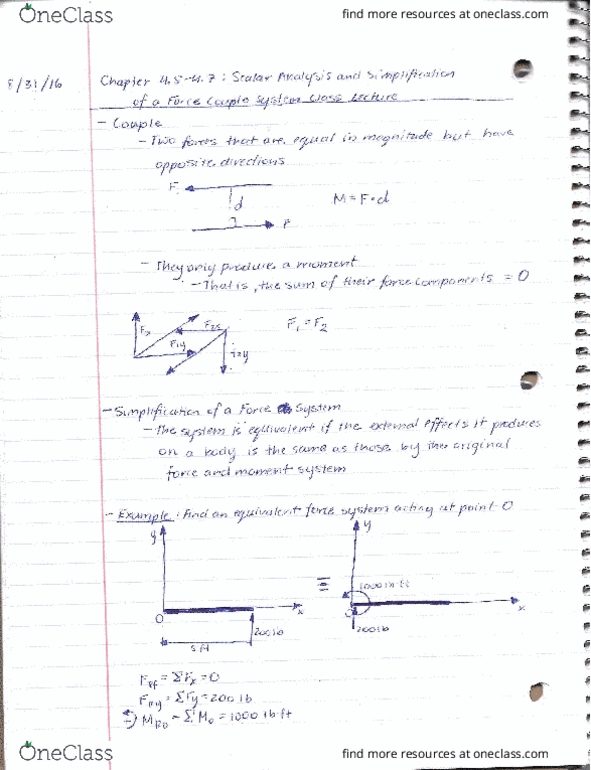 OneClass
find more resources at oneclass.com
8/31/16
Chapter 4.5-4.7: Scalar Analysis and Simplification
of a Force Couple System Class Lecture
- Couple
- Two forces that are equal in magnitude but have
opposite directions
F
d
M = F • d
F
- They only produce a moment
- That is, the sum of their force components = 0
Fx
F2x
F1y
F1 = F2
- Simplification of a Force System
- The system is equivalent if the external effects it produces
on a body is the same as those by the original
force and moment system
- Example: Find an equivalent force system acting at point O
y
y
≡
1000 lb ft
O
x
x
200 lb
200 lb
5 ft
= ΣFx = 0
= ΣFy = 200 lb
= ΣMo = 1000 lb·ft
OneClass
find more resources at oneclass.com